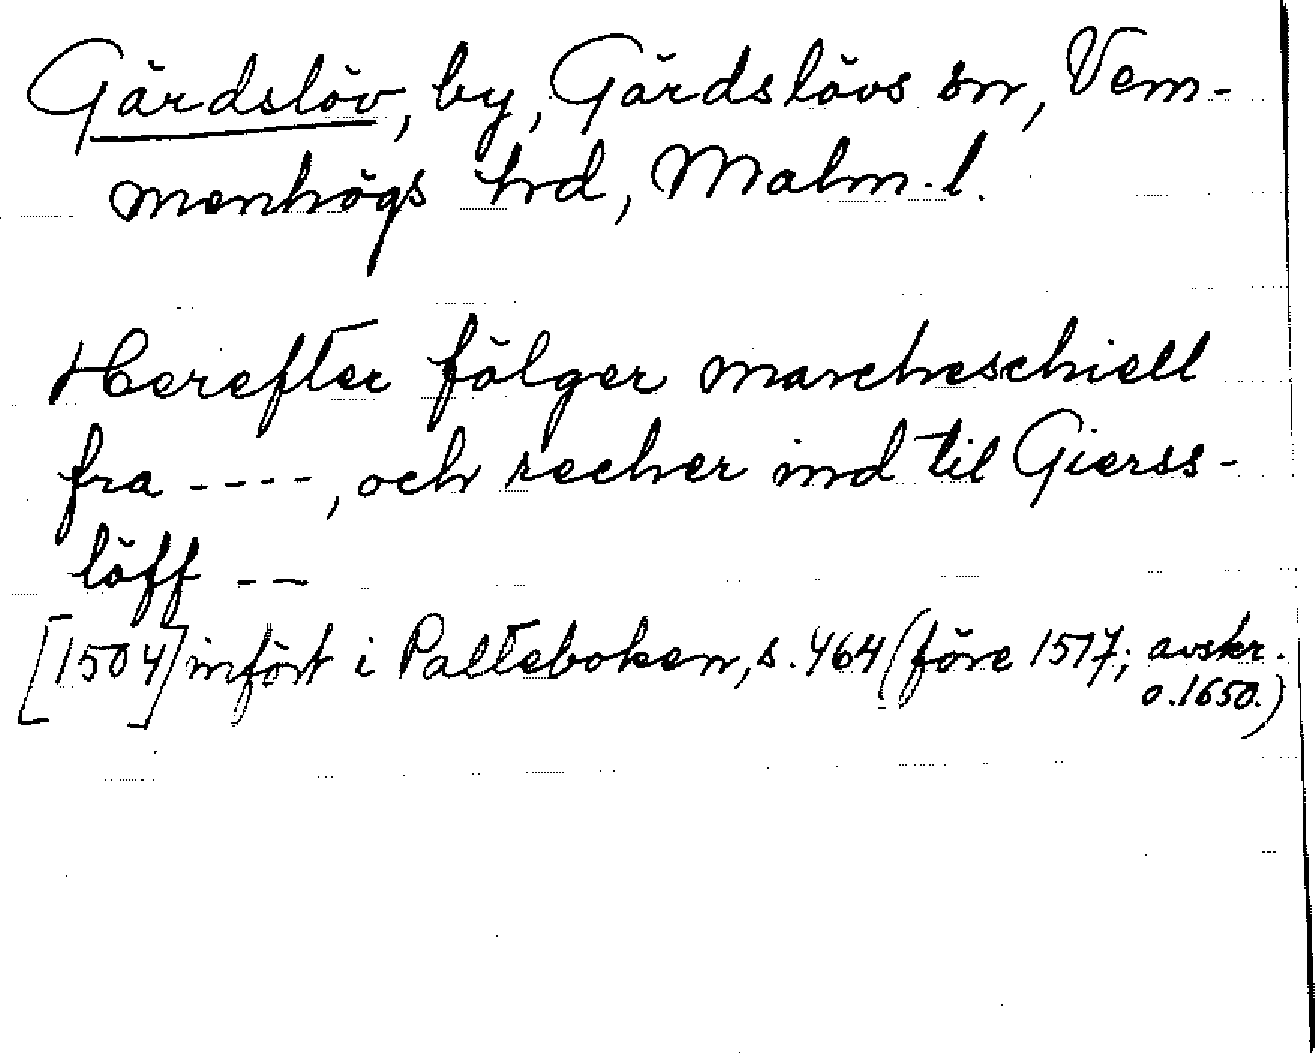 Gärdslöv, by, Gärdslövs sn, Vem-
menhögs hrd, Malm. l.
Herefter fölger marcheschiell
fra ----, och recher ind til Gierss-
löff --
[1504] infört i Palteboken, s. 464 (före 1517; avskr.
o. 1650.)